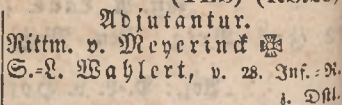 Adjutantur.
Rittm. v. Meyerinck ✠
S.=L. Wahlert, v. 28. Inf.=R.
z. Dstl.